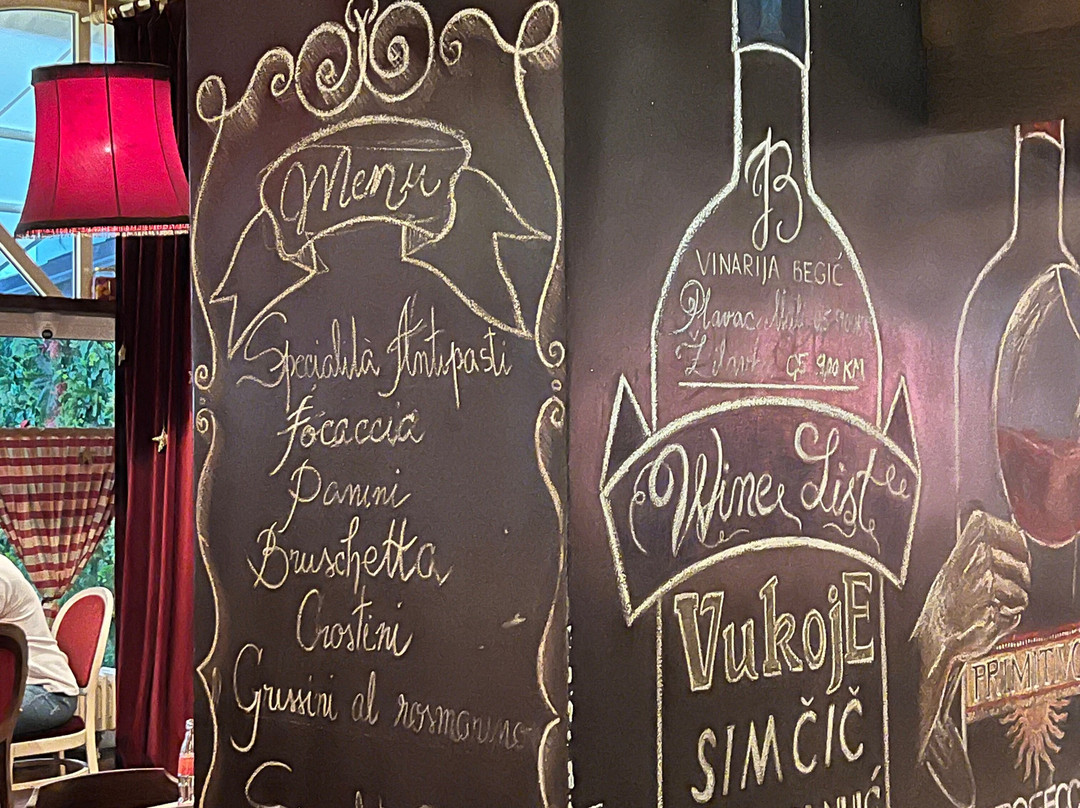 Menu
Specialità Antipasti
Focaccia
Panini
Bruschetta
Crostini
Grissini al rosmarino
JB
VINARIJA BEGIĆ
Plavac Mali
Žilavka 0,5 9,00 KM
Wine Liste
VukojE
SIMČIČ
PRIMITIVO